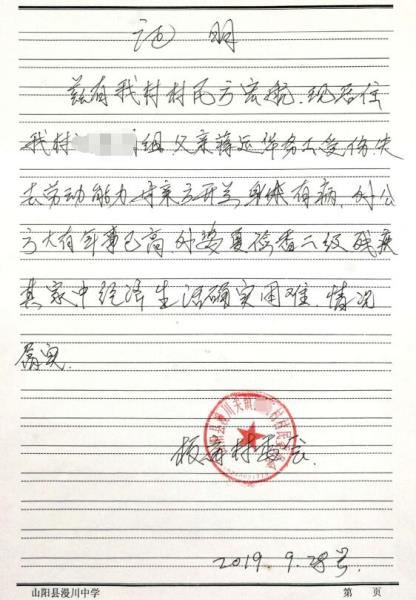 证明
兹有我村村民方宏航,现居住
我村组,父亲蒋运华务工受伤,失
去劳动能力,母亲方开兰身体有病,外公
方大有年事已高,外婆夏检香二级残疾
其家中经济生活确实困难,情况
属实.
村委会.
2019.9.28号.
山阳县漫川中学
第 页